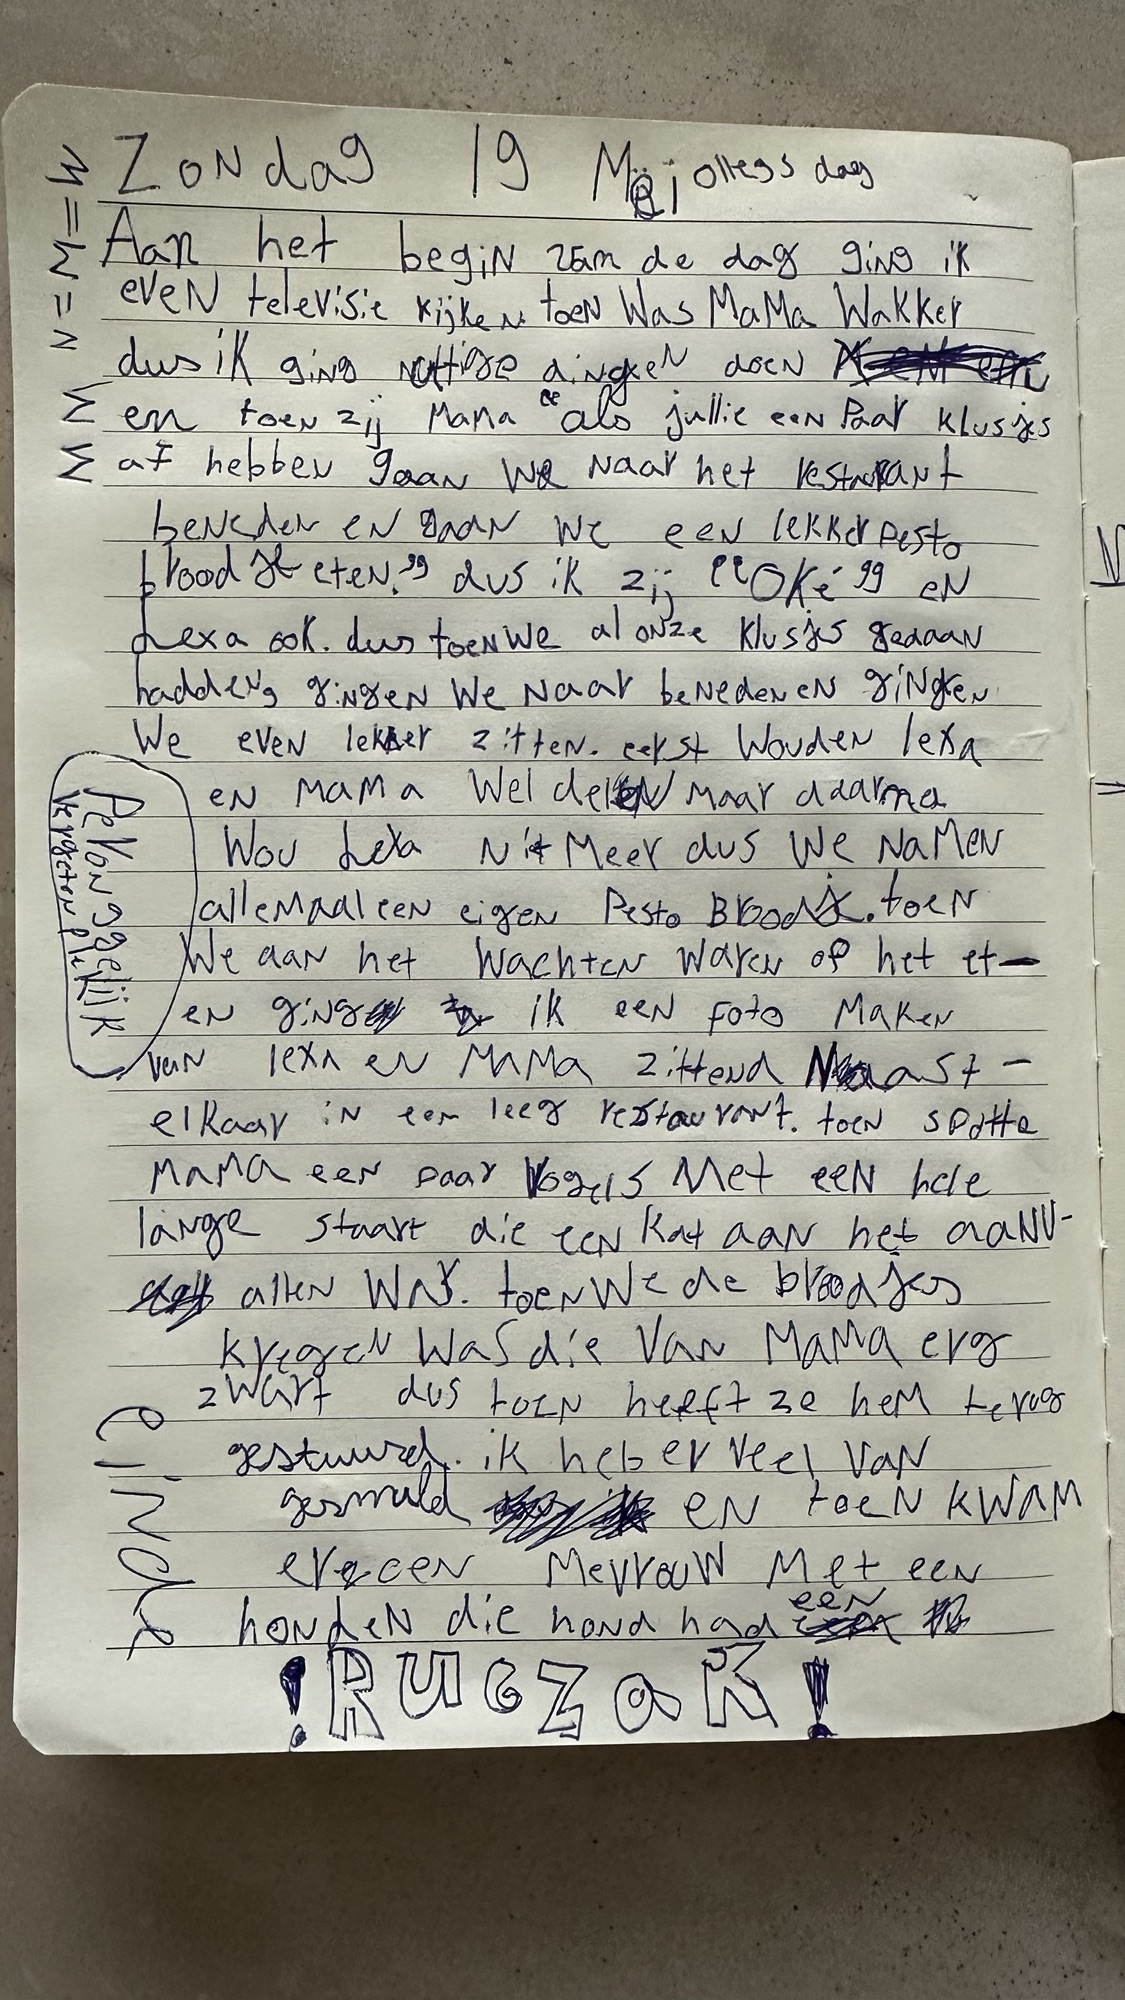 Zondag 19 Mei ollegsdag
Aan het begin van de dag ging ik
even televisie kijken toen Was MaMa Wakker
dus ik ging nuttige dingen doen
en toen zij Mama "als jullie een Paar klusjes
af hebben gaan We Naar het restaurant
beneden en gaan We een lekker Pesto
broodje eten." dus ik zij "Oké" en
Lexa ook. dus toen We al onze klusjes gedaan
hadden, gingen We Naar beneden en gingen
We even lekker zitten. eerst Wouden lexa
en MaMa Wel delen maar daarna
Wou Lexa Nit Meer dus We NaMen
alleMaal een eigen Pesto Broodje. toen
We aan het Wachten Waren op het et-
en ging ik een Foto Maken
van lexa en MaMa zittend Naast-
elkaar in een leeg restaurant. toen spotte
MaMa een paar Vogels Met een hele
lange staart die een kat aan het aanv-
allen Was. toen We de broodjes
kregen Was die Van MaMa erg
zwart dus toen heeft ze heM terug
gestuurd. ik heb er veel Van
gesmuld en toen kwaM
er een Mevrouw Met een
honden die hond had een
!RUGZAK!
einde